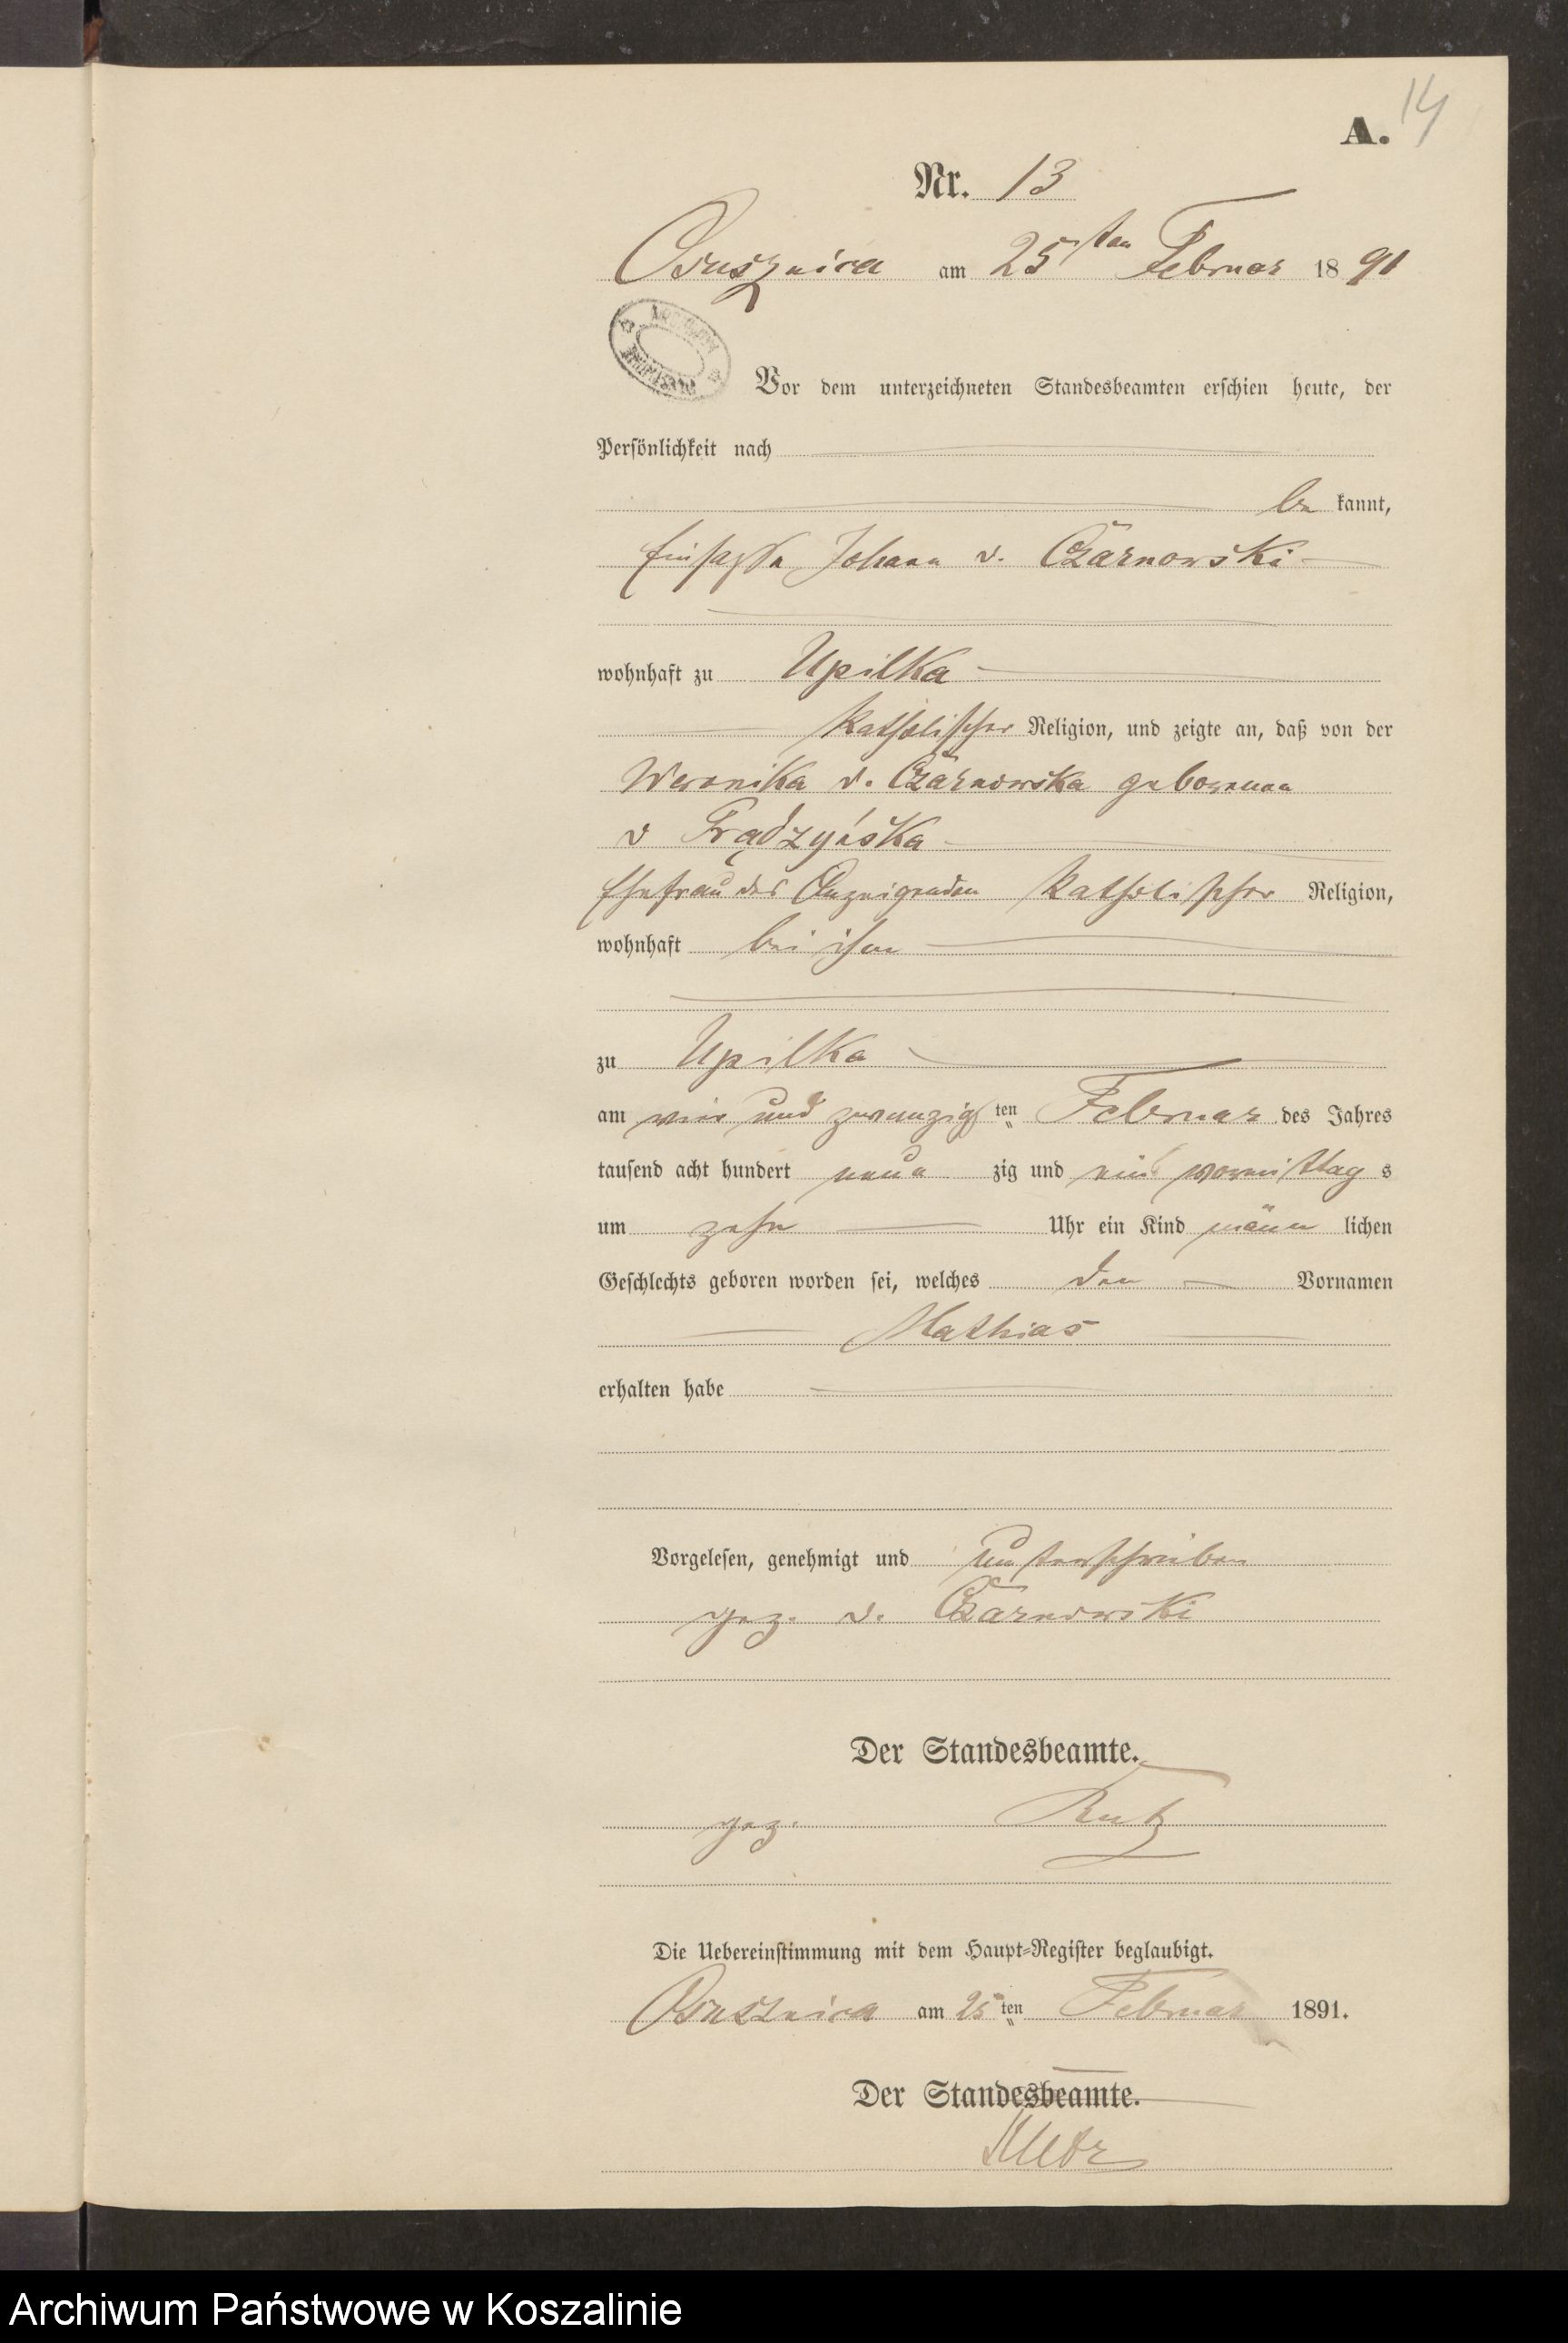 14
A.
Nr. 13
Ossusznica am 25sten Februar 1891
Vor dem unterzeichneten Standesbeamten erschien heute, der
Persönlichkeit nach
be kannt,
Einsasse Johann v. Czarnowski
wohnhaft zu Upilka
katholischer Religion, und zeigte an, daß von der
Weronika v. Czarnowska geborenen
v Prądzyńska
Ehefrau des Anzeigenden katholischer Religion,
wohnhaft bei ihm
zu Upilka
am vier und zwanzig ten Februar des Jahres
tausend acht hundert neun zig und ein vormittag s
um zehn Uhr ein Kind männ lichen
Geschlechts geboren worden sei, welches den Vornamen
Mathias
erhalten habe
Vorgelesen, genehmigt und unterschrieben
gez. v. Czarnowski
Der Standesbeamte.
gez.
Die Uebereinstimmung mit dem Haupt-Register beglaubigt.
Ossusznica am 25ten Februar 1891.
Der Standesbeamte.
Archiwum Państwowe w Koszalinie